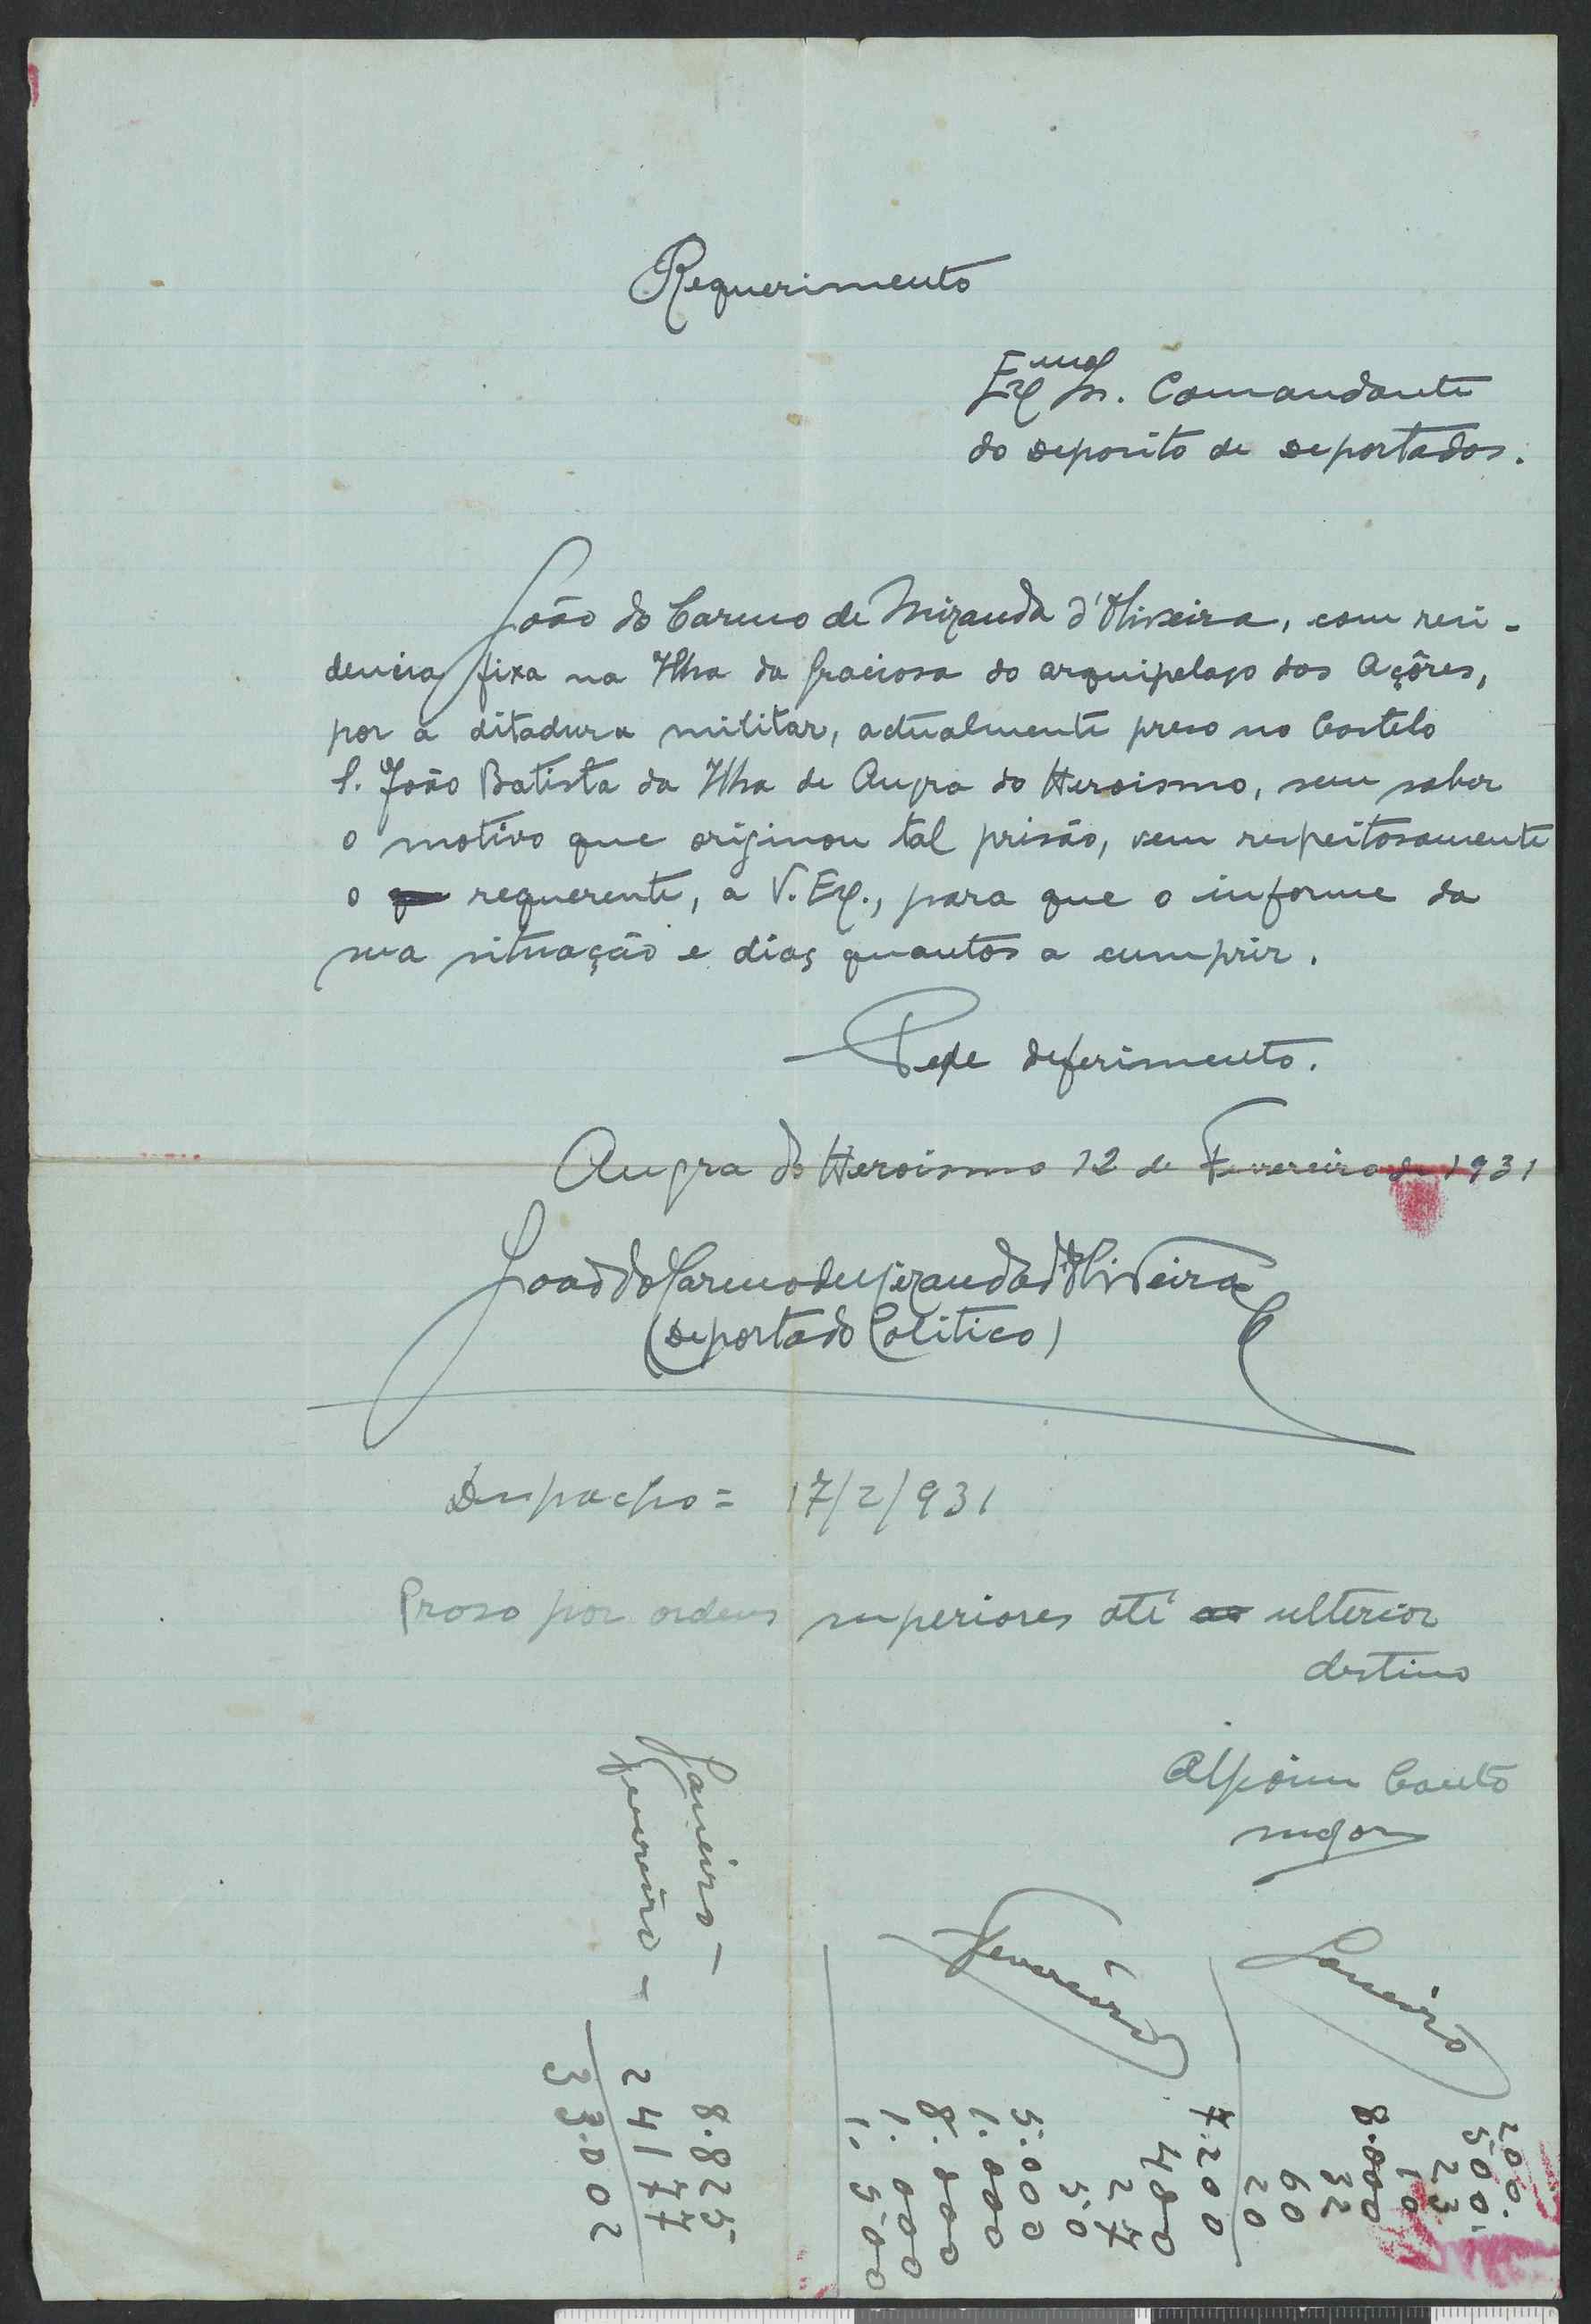 Requerimento
Exmo Sr. Comandante
do deposito de deportados.
João do Carmo de Miranda d'Oliveira, com resi-
dencia fixa na Ilha da Graciosa do arquipelago dos Açôres,
por a ditadura militar, actualmente preso no Castelo
S. João Batista da Ilha de Angra do Heroismo, sem saber
o motivo que originou tal prisão, vem respeitosamente
o requerente, a V. Ex., para que o informe da
sua situação e dias quantos a cumprir.
Pede deferimento.
Angra do Heroismo 12 de Fevereiro de 1931
João do Carmo de Miranda d'Oliveira
(Deportado Politico)
Despacho = 17/2/931
Preso por ordens superiores até ulterior
destino
Alpoim Couto
major
Janeiro -
Fevereiro -
8.825
24177
33.002
Janeiro
200
500
23
10
8.000
32
60
20
Fevereiro
7.200
400
27
50
5.000
1.000
8.000
1.000
1.500